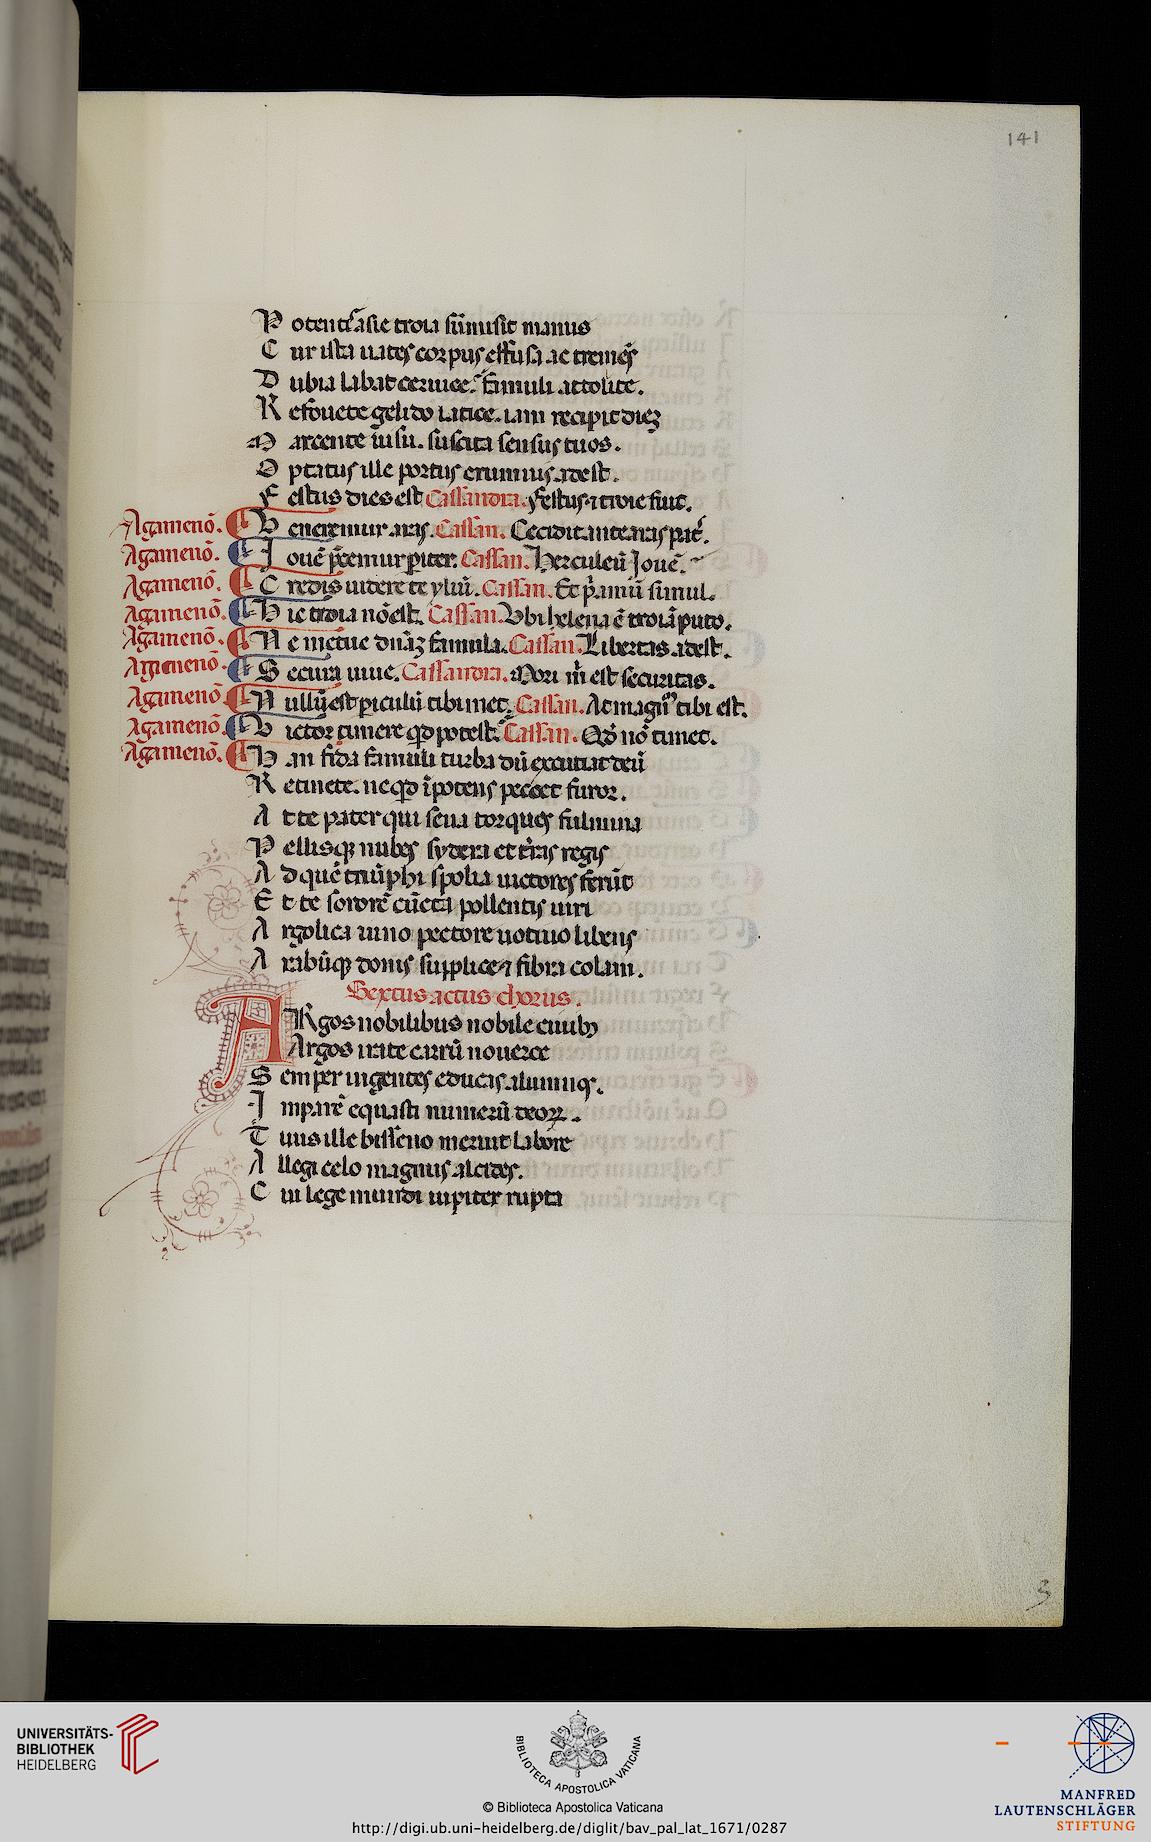 141
Potentẽ asie troia sũmisit manus
Cur ista uates corpus effusa ac tremẽs
Dubia labat ceruice. famuli attolite.
Refouete gelido latice. iam recipit diez
Marcente uisu. suscita sensus tuos.
Optatus ille portus erumnis adest.
Festus dies est Cassandra. Festus ⁊ troie fuit.
Agamenõ. Veneremur aras. Cassan. Cecidit ante aras pať.
Agamenõ. Iouẽ p̃cemur pariter. Cassan. Herculeũ Jouẽ.
Agamenõ. Credis uidere te yliũ. Cassan. Et p̃amũ simul.
Agamenõ. Hic troia nõ est. Cassan. Vbi helena ẽ troiã puto.
Agamenõ. Ne metue dñaz famula. Cassan. Libertas adest.
Agamenõ. Secura uiue. Cassandra. Mori m̃ est securitas.
Agamenõ. Nullũ est piculũ tibimet. Cassan. At magnũ tibi est.
Agamenõ. Victor timere qd potest. Cassan. Qd̃ nõ timet.
Agamenõ. Han fida famuli turba dũ excutiat deũ
Retinete. ne qd ĩpotens peccet furor.
At te pater qui seua torques fulmina
Pellisqꝫ nubes sydera et t̃ras regis
Ad quẽ triũphi spolia uictores ferũt
Et te sororẽ cũcta pollentis uiri
Argolica iuno pectore uotiuo libens
Arabũqꝫ donis supplice ⁊ fibra colam.
Sextus actus chorus.
ARgos nobilibus nobile ciuibꝫ
Argos irate carũ nouerce
Semper ingentes educas alumnos.
Imparẽ equasti numerũ deoꝝ.
Tuus ille bisseno meruit labore
Allegi celo magnus alcides.
Cui lege mundi iupiter rupta
UNIVERSITÄTS-
BIBLIOTHEK
HEIDELBERG
BIBLIOTECA APOSTOLICA VATICANA
© Biblioteca Apostolica Vaticana
http://digi.ub.uni-heidelberg.de/diglit/bav_pal_lat_1671/0287
MANFRED
LAUTENSCHLÄGER
STIFTUNG